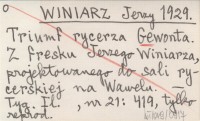 WINIARZ Jerzy 1929.
Triumf rycerza Gewonta.
Z fresku Jerzego Winiarza,
projektowanego do sali ry-
cerskiej na Wawelu. —
Tyg. Il. , nr 21: 419, tylko
reprod.